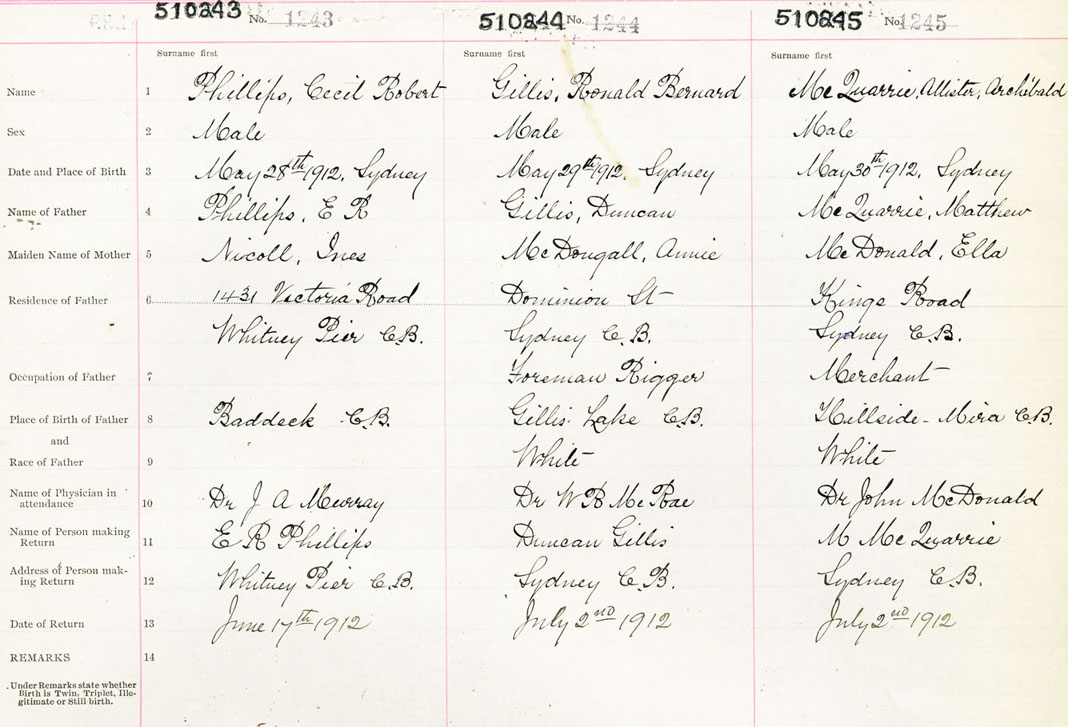 510243 No. 1243 510244 No. 1244 510245 No. 1245
Surname first Surname first Surname first
Name 1 Phillips, Cecil Robert Gillis, Ronald Bernard Mc Quarrie, Allister, Archibald
Sex 2 Male Male Male
Date and Place of Birth 3 May 28th 1912, Sydney May 29th 1912, Sydney May 30th 1912, Sydney
Name of Father 4 Phillips, E R Gillis, Duncan Mc Quarrie, Matthew
Maiden Name of Mother 5 Nicoll, Ines McDougall, Annie McDonald, Ella
Residence of Father 6 1431 Victoria Road Dominion St Kings Road
Whitney Pier C.B. Sydney C.B. Sydney C.B.
Occupation of Father 7 Foreman Rigger Merchant
Place of Birth of Father 8 Baddeck C.B. Gillis Lake C.B. Hillside - Mira C.B.
and
Race of Father 9 White White
Name of Physician in
attendance 10 Dr J A Murray Dr W R McRae Dr John McDonald
Name of Person making
Return 11 E R Phillips Duncan Gillis M McQuarrie
Address of Person mak-
ing Return 12 Whitney Pier C.B. Sydney C.B. Sydney C.B.
Date of Return 13 June 17th 1912 July 2nd 1912 July 2nd 1912
REMARKS 14
Under Remarks state whether
Birth is Twin, Triplet, Ille-
gitimate or Still birth.